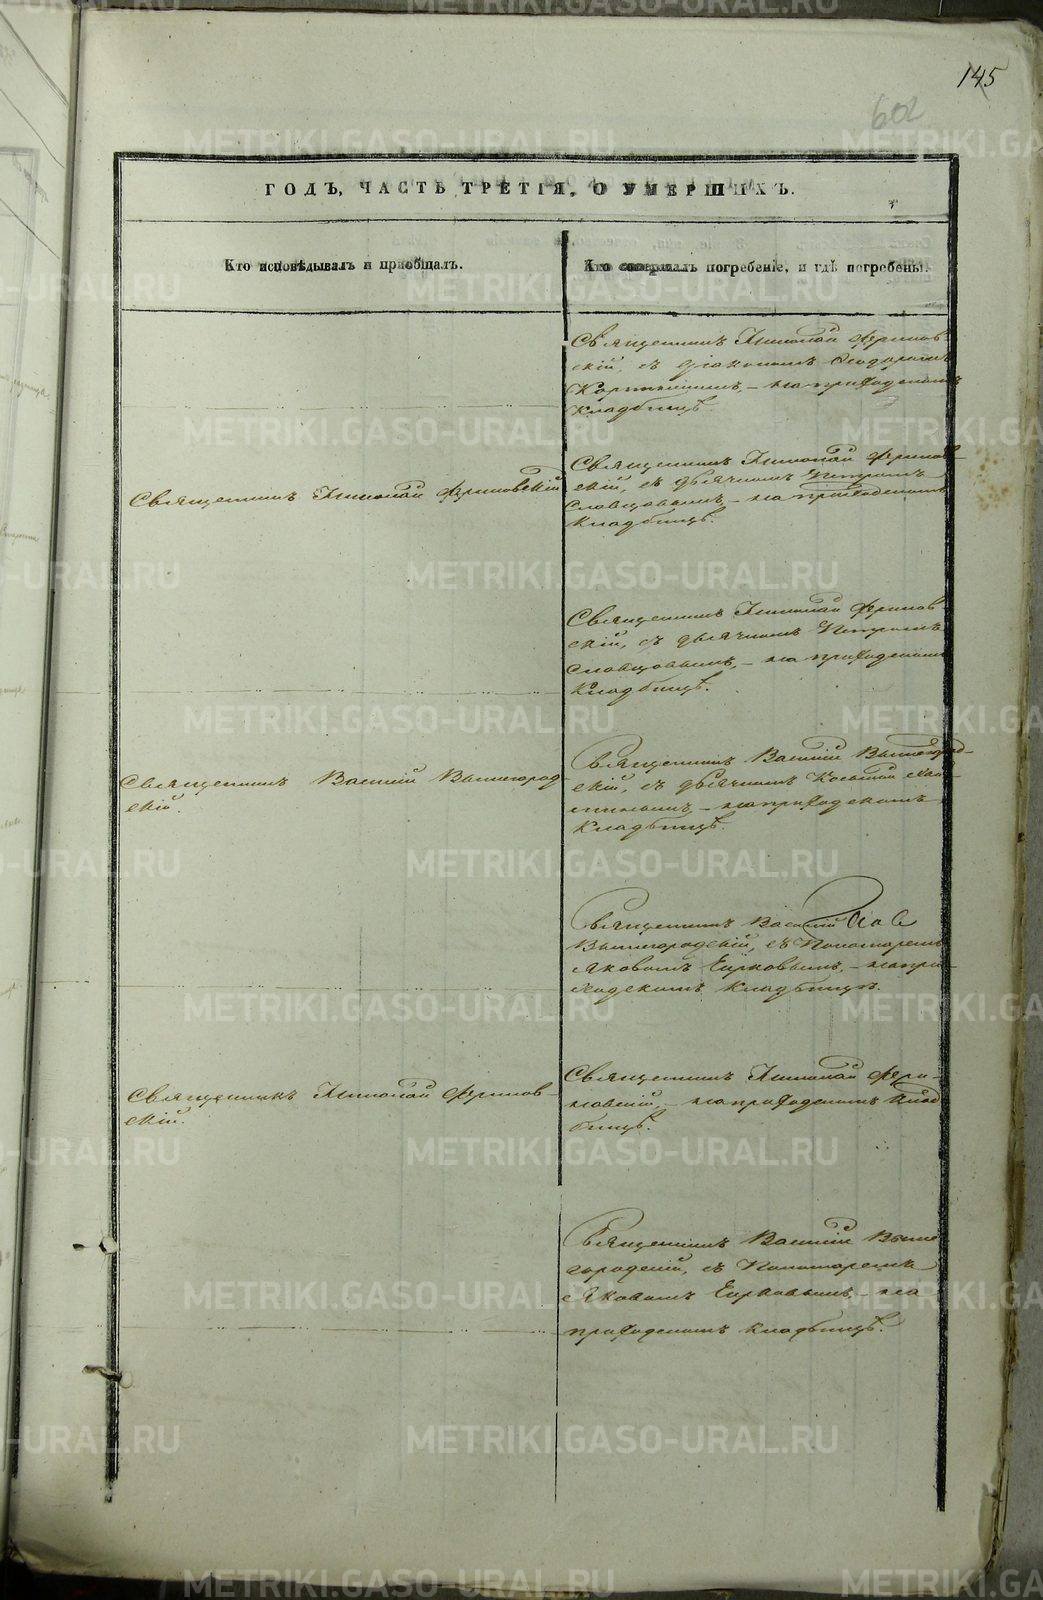 145
602
ГОДЪ, ЧАСТЬ ТРЕТІЯ, О УМЕРШИХЪ.
Кто исповѣдывалъ и пріобщалъ.
Кто совершалъ погребеніе, и гдѣ погребены.
Священникъ Николай Ѳеринов
скій, съ діакономъ Ѳеодоромъ
на приходскомъ
Кладбищѣ
Священникъ Николай Ѳериновскій
Священникъ Николай Ѳеринов-
скій, съ дьячкомъ Петромъ
Словцовымъ, - на приходскомъ
Кладбищѣ.
Священникъ Николай Ѳеринов
скій, съ дьячкомъ Петромъ
Словцовымъ, - на приходскомъ
Кладбищѣ.
Священникъ Василій Вышегород
скій.
Священникъ Василій Вышегород-
скій, съ дьячкомъ Космой
- на приходскомъ
Кладбищѣ.
Священникъ Василій
Вышегородскій, съ Пономаремъ
Яковомъ - на при-
ходскомъ Кладбищѣ.
Священникъ Николай Ѳеринов-
скій.
Священникъ Николай Ѳери-
новскій, - на приходскомъ Клад
бищѣ.
Священникъ Василій Выше
городскій, съ Пономаремъ
Яковомъ - на
приходскомъ кладбищѣ.
METRIKI.GASO-URAL.RU